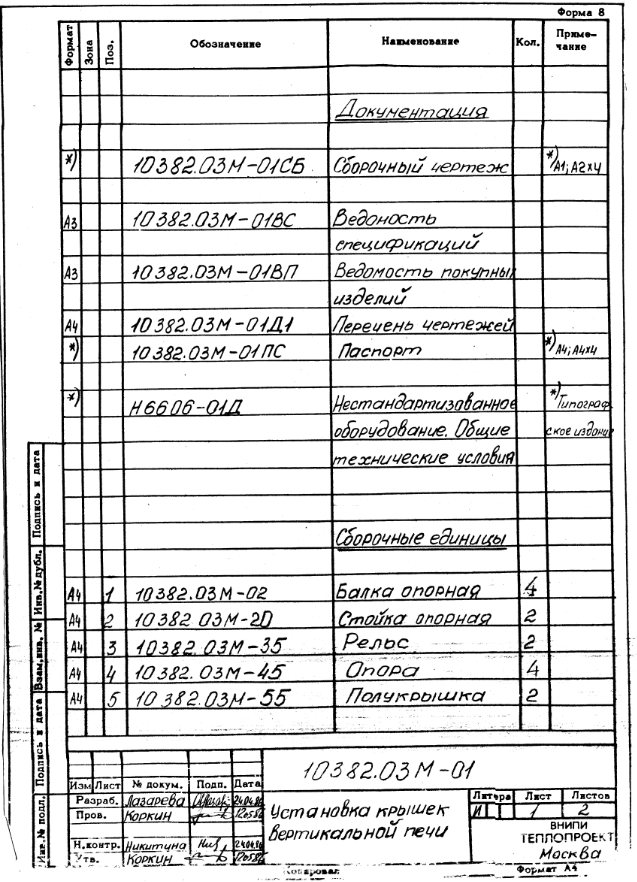 Форма 8
Формат Зона Поз. Обозначение Наименование Кол. Приме-
чание
Документация
*) 10382.03М-01СБ Сборочный чертеж *) А1; А2х4
А3 10382.03М-01ВС Ведоность
спецификаций
А3 10382.03М-01ВП Ведомость покупных
изделий
А4 10382.03М-01Д1 Перечень чертежей
*) 10382.03М-01ПС Паспорт *) А4; А4х4
*) Н6606-01Д Нестандартизованное *) Типограф
оборудование. Общие ское издание
технические условия
Сборочные единицы
А4 1 10382.03М-02 Балка опорная 4
А4 2 10382 03М-20 Стойка опорная 2
А4 3 10382.03М-35 Рельс 2
А4 4 10382.03М-45 Опора 4
А4 5 10382.03М-55 Полукрышка 2
Инв.№ подл. Подпись и дата Взам.инв. № Инв.№ дубл. Подпись и дата
10382.03М-01
Изм Лист № докум. Подп. Дата
Разраб. Лазарева
Пров. Коркин
Н.контр. Никитина
Утв. Коркин
Установка крышек
вертикальной печи
Литера Лист Листов
И 1 2
ВНИПИ
ТЕПЛОПРОЕКТ
Москва
Копировал Формат А4